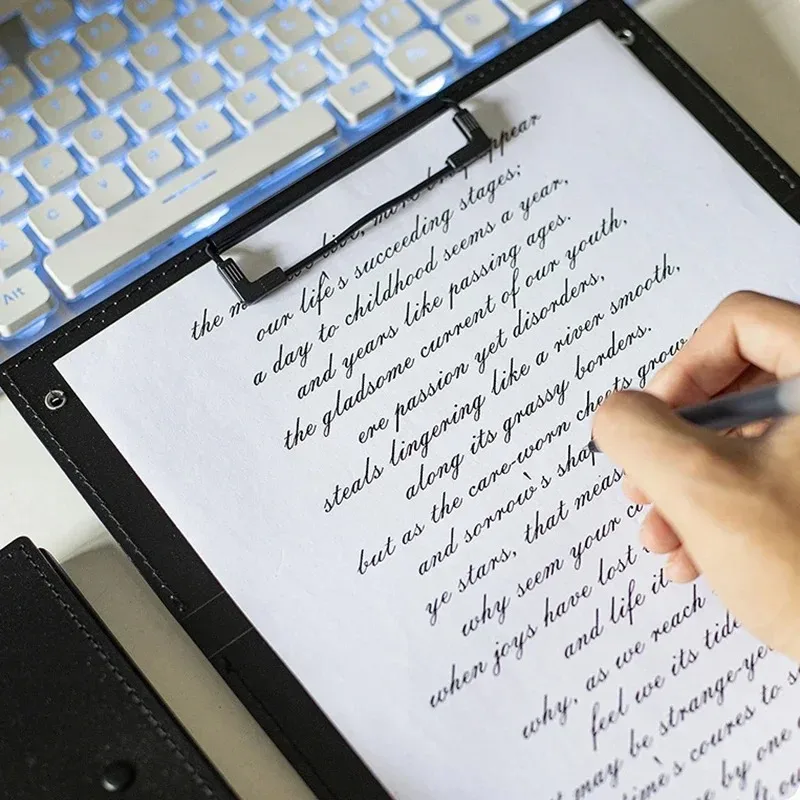 Alt
the we live, more appear
our life's succeeding stages;
a day to childhood seems a year,
and years like passing ages.
the gladsome current of our youth,
ere passion yet disorders,
steals lingering like a river smooth,
along its grassy borders.
but as the care-worn cheets grow
and sorrow's
ye stars, that
why seem your
when joys have lost
and life
why, as we reach
feel we its
may be
time's coures to
by one